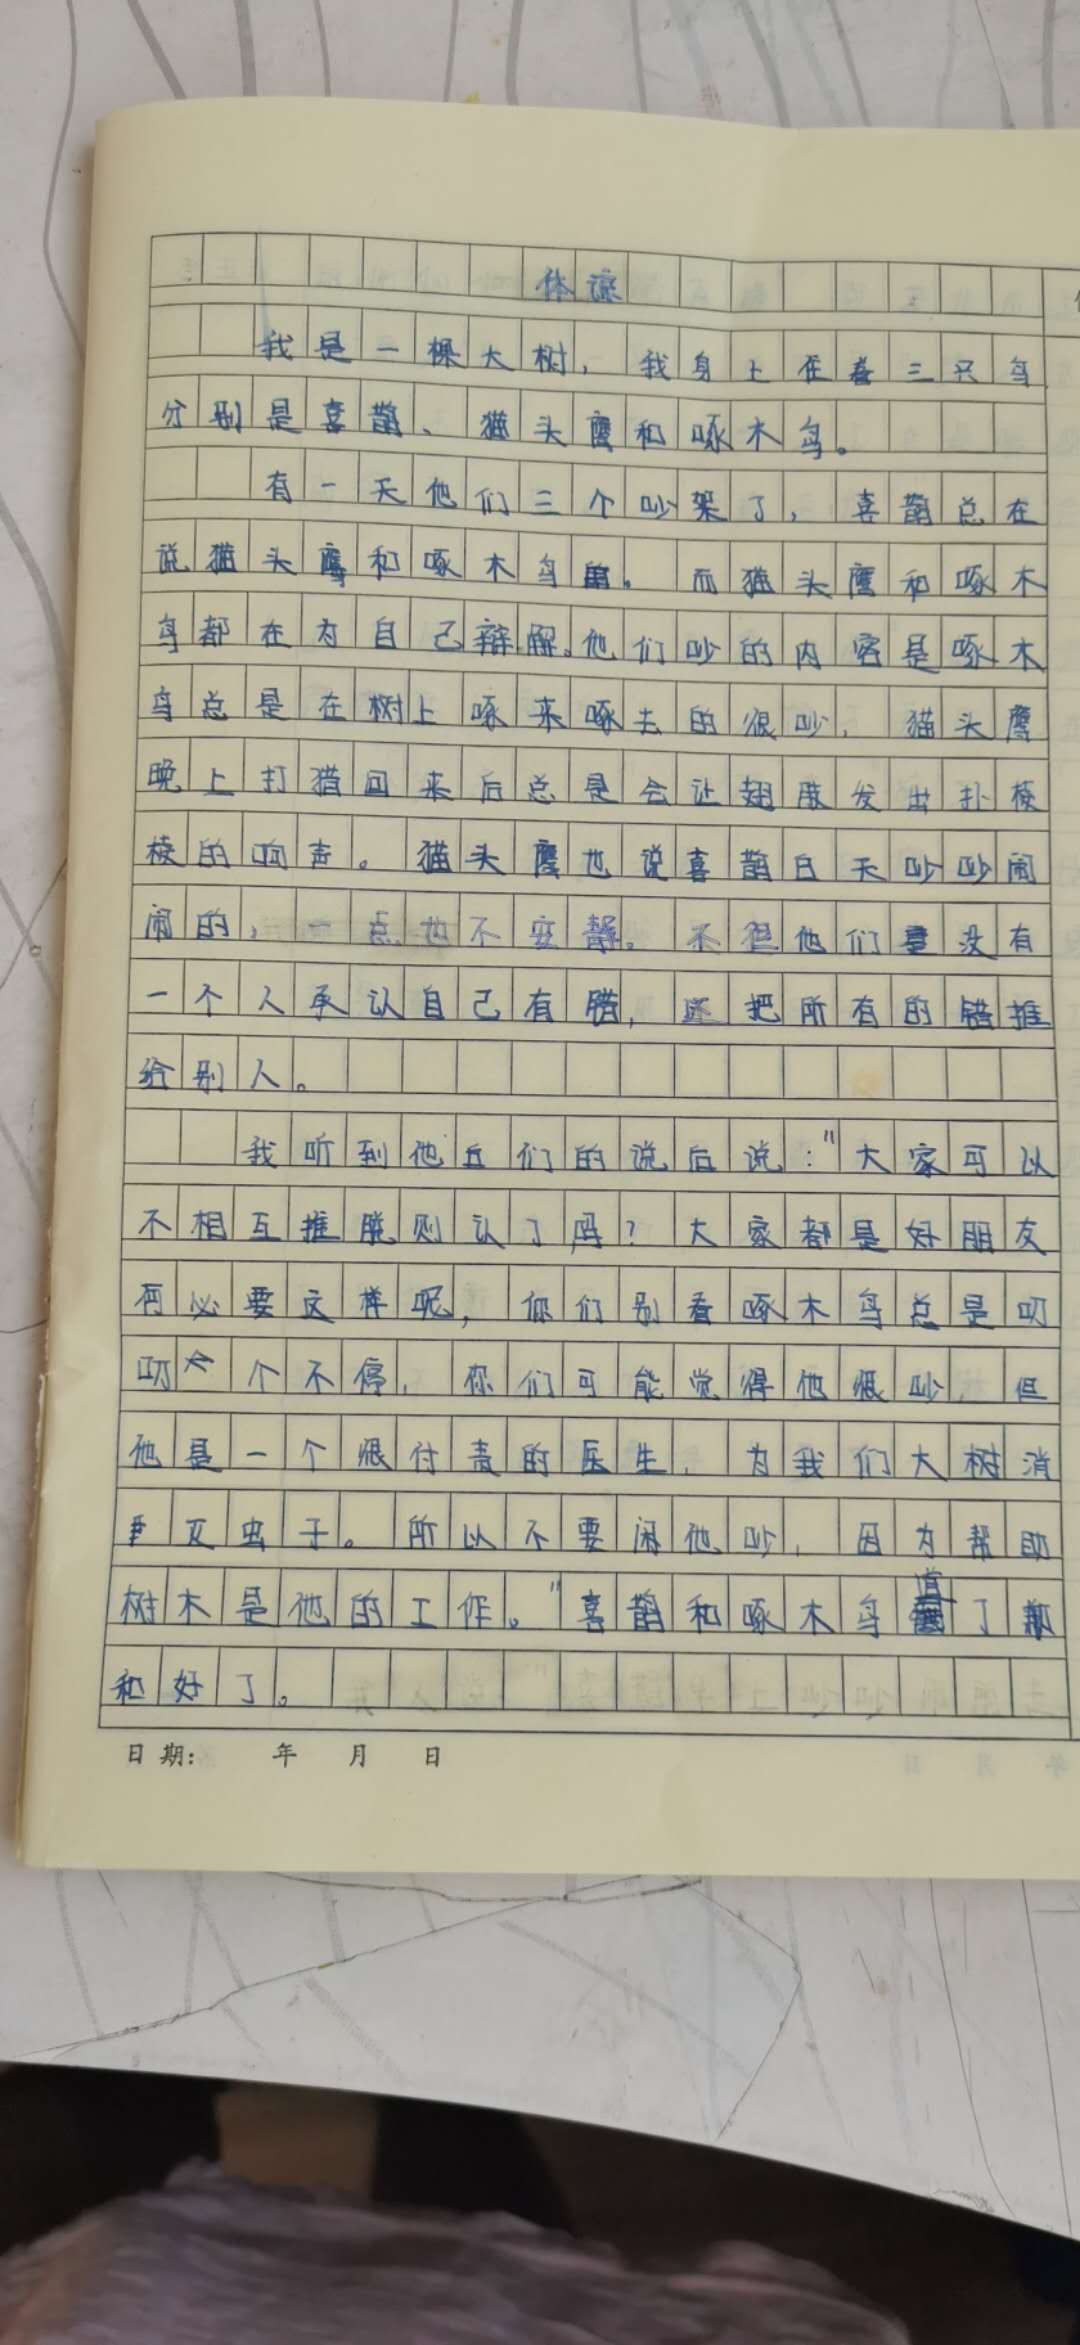 体谅
我是一棵大树，我身上住着三只鸟
分别是喜鹊、猫头鹰和啄木鸟。
有一天他们三个吵架了，喜鹊总在
说猫头鹰和啄木鸟。而猫头鹰和啄木
鸟都在为自己辩解。他们吵的内容是啄木
鸟总是在树上啄来啄去的很吵，猫头鹰
晚上打猎回来后总是会让翅膀发出扑棱
棱的响声。猫头鹰也说喜鹊白天吵吵闹
闹的，一点也不安静。不但他们没有
一个人承认自己有错，还把所有的错推
给别人。
我听到他们的说后说："大家可以
不相互推脱则认了吗？大家都是好朋友
何必要这样呢，你们别看啄木鸟总是叨
叨个不停，你们可能觉得他很吵，但
他是一个很付责的医生，为我们大树消
灭虫子。所以不要闲他吵，因为帮助
树木是他的工作。"喜鹊和啄木鸟道了
和好了。
日期： 年 月 日